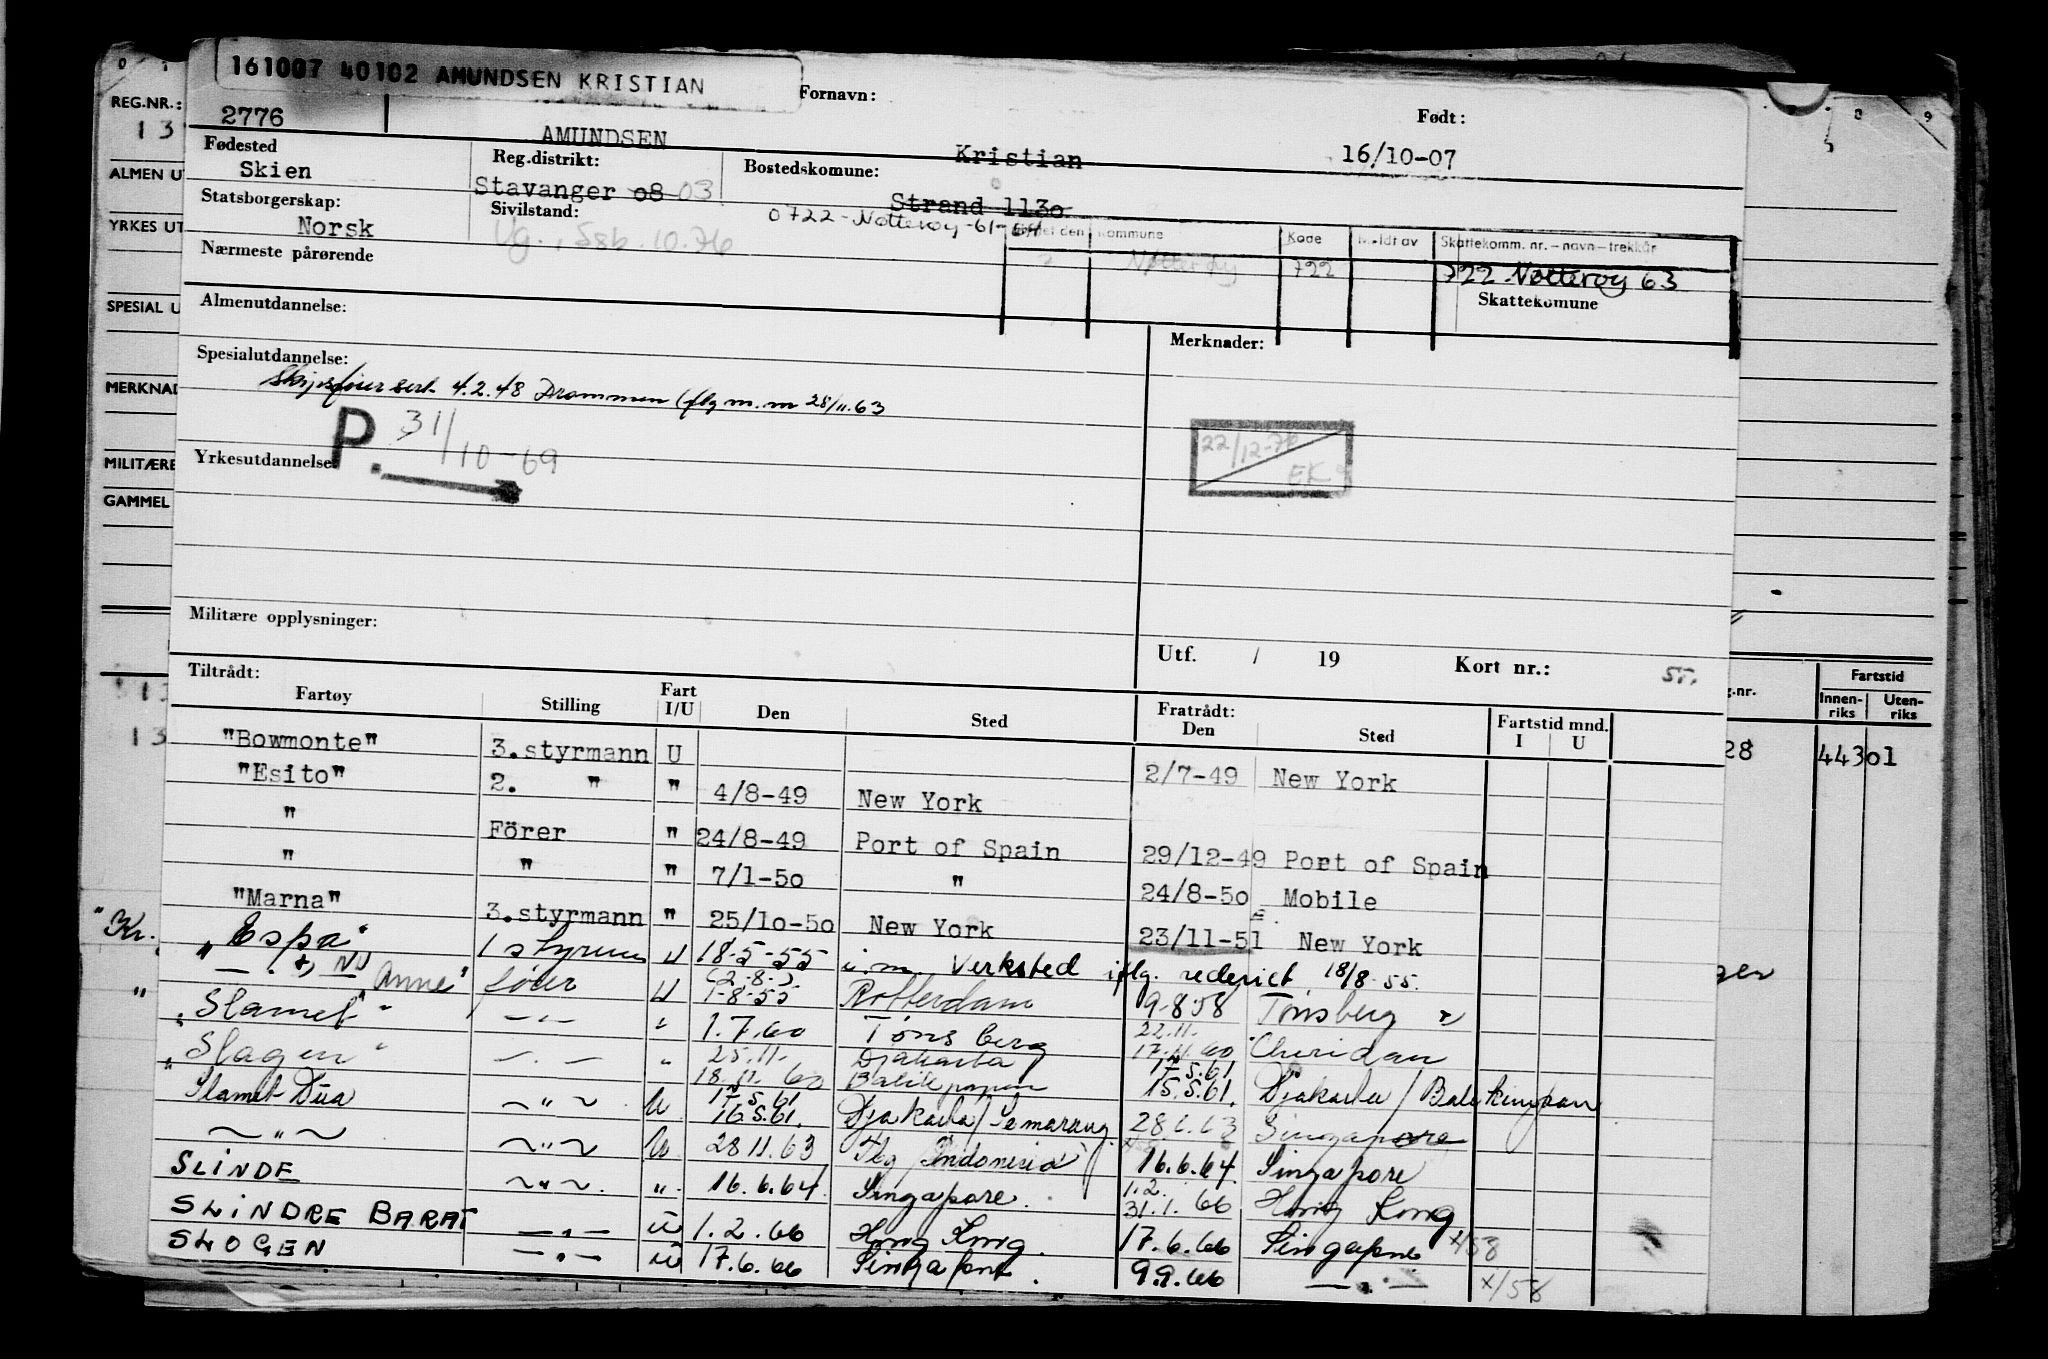 161007 40102 AMUNDSEN KRISTIAN
REG.NR.: 2776 AMUNDSEN Fornavn: Kristian Født: 16/10-07
13
Fødested Skien Reg.distrikt: Stavanger 08 03 Bostedskomune: Strand 1130
0722-Nøtterøy-61-64
Statsborgerskap: Norsk Sivilstand: Ug., Ssb. 10.76
den Kommune Kode Meldt av Skattekomm. nr.-navn-trekkår
Nøtterøy 722 722 Nøtterøy 63
Nærmeste pårørende Skattekomune
Almenutdannelse: Merknader:
Spesialutdannelse: Skipsfører sert. 4.2.48 Drammen (flg m.m 28/11.63
P. 31/10-69
22/12-76 EK
Yrkesutdannelse
Militære opplysninger:
Utf. / 19 Kort nr.: 55.
ALMEN UT
YRKES UT
SPESIAL U
MERKNAD
MILITÆRE
GAMMEL
Tiltrådt: Fratrådt:
Fartøy Stilling Fart I/U Den Sted Den Sted Fartstid mnd. I U
"Bowmonte" 3.styrmann U 2/7-49 New York
"Esito" 2. " " 4/8-49 New York
" Förer " 24/8-49 Port of Spain 29/12-49 Port of Spain
" " " 7/1-50 " 24/8-50 Mobile
"Marna" 3.styrmann " 25/10-50 New York 23/11-51 New York
"Espa" 1 styrm U 18-5-55 i.m. Verksted iflg. rederiet 18/8-55.
— " — NU "Anne" fører U (2-8-) 1-8-55 Rotterdam 9-8-58 Tønsberg
"Slamet" — " — " 1.7.60 Tønsberg 22.11. 17.11.60 Cheridan
"Slagen" — " — " 25.11. 18.11.60 Djakarta Balikpapan 17.5.61 15.5.61. Djakarta/Balikpapan
Slamet Dua ~ " ~ U. 17.5.61 16.5.61. Djakarta/Semarang 28.6.63 Singapore
~ " ~ ~ " ~ U. 28.11.63 Tbg Indonesia 16.6.64. Singapore
SLINDE ~ " ~. ". 16.6.64. Singapore. 1.2. 31.1.66 Hong Kong
SLINDRE BARAT — " — U 1.2.66 Hong Kong. 17.6.66 Singapore x/58
SLOGEN — " — U 17.6.66 Singapore. 9.9.66 — " — x/58
"Kr.
"
g.nr. Fartstid
Innen-riks Uten-riks
28 443 01
ger